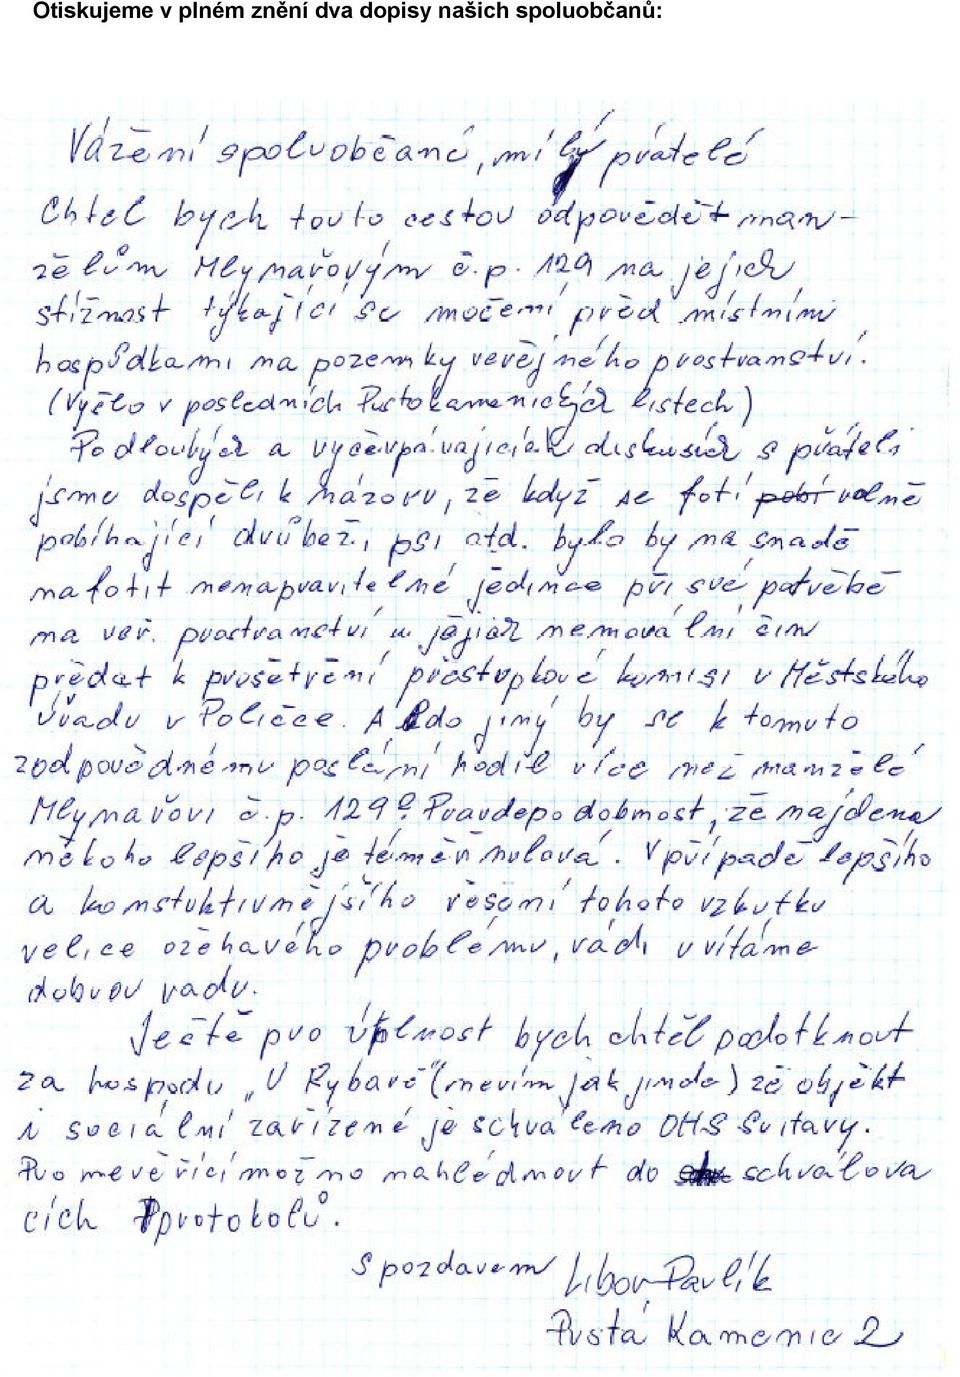 Otiskujeme v plném znění dva dopisy našich spoluobčanů:
Vážení spoluobčané, milý přátelé
Chtěl bych touto cestou odpovědět man-
želům Mlynařovým č.p. 129 na jejich
stížnost týkající se močení před místními
hospůdkami na pozemky veřejného prostranství.
(Vyšlo v posledních Pustokamenických listech)
Po dlouhých a vyčerpávajících diskusích s přáteli
jsme dospěli k názoru, že když se fotí pobí volně
pobíhající drůbež, psi atd. bylo by na snadě
nafotit nenapravitelné jedince při své potřebě
na veř. prostranství a jejich nemorální čin
předat k prošetření přestupkové komisi v Městského
úřadu v Poličce. A kdo jiný by se k tomuto
zodpovědnému poslání hodil více než manželé
Mlynařovi č.p. 129? Pravdepodobnost, že najdena
někoho lepšího je téměř nulová. V případě lepšího
a konstuktivnějšího řešení tohoto vzkutku
velice ožehavého problému, rádi uvítáme
dobrou radu.
Ješte pro úplnost bych chtěl podotknout
za hospodu „U Rybare" (nevím jak jinde) že objekt
i sociální zařízené je schváleno OHS Svitavy.
Pro nevěřící možno nahlédnout do schvalova
cích protokolů.
S pozdavem Libor Pavlík
Pustá Kamenice 2